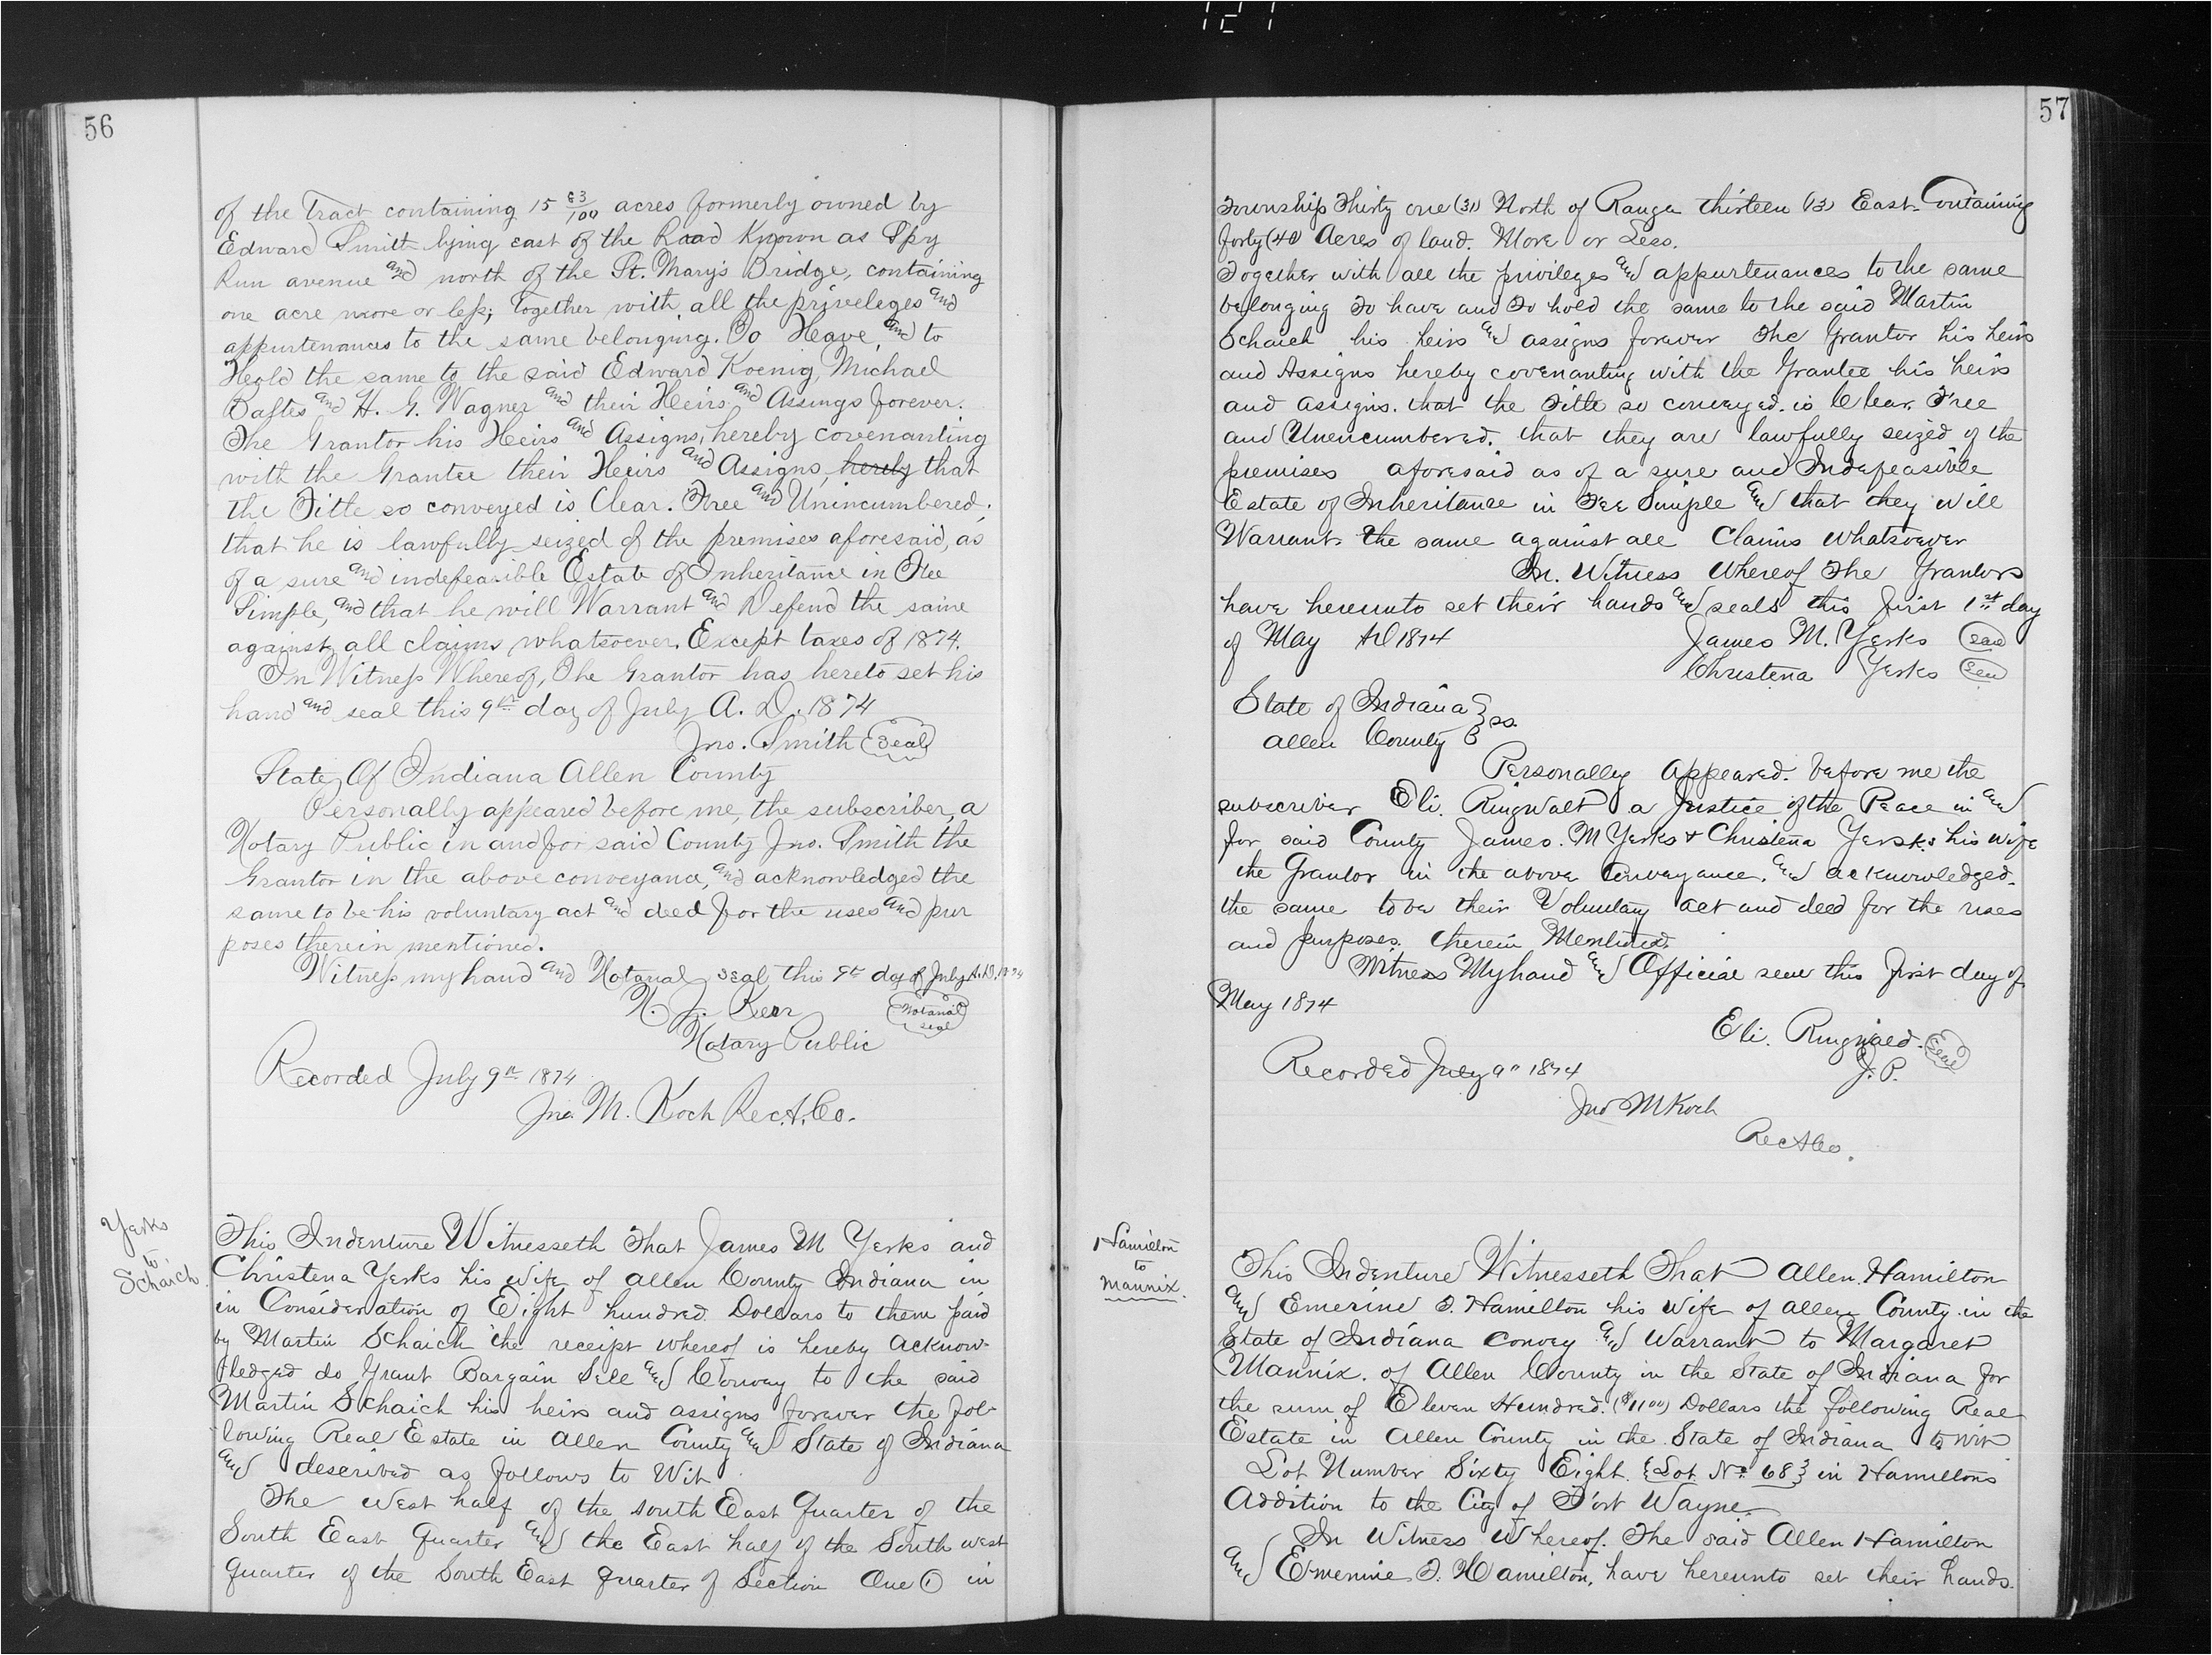 121
56
of the Tract containing 15 63/100 acres formerly owned by
Edward Smith lying east of the Road Known as Spy
Run avenue and north of the St. Mary's Bridge, containing
one acre more or less; Together with all the priveleges and
appurtenances to the same belonging. To Have, and to
Hold the same to the said Edward Koenig, Michael
Baltes and H. G. Wagner and their Heirs and Assings forever.
The Grantor his Heirs and Assigns, hereby covenanting
with the Grantee their Heirs and Assigns, hereby that
the Title so conveyed is Clear. Free and Unincumbered;
that he is lawfully seized of the premises aforesaid, as
of a sure and indefeasible Estate of Inheritance in Fee
Simple, and that he will Warrant and Defend the same
against all claims whatsoever. Except taxes of 1874.
In Witness Whereof, The Grantor has hereto set his
hand and seal this 9th day of July A. D. 1874
Jno. Smith Seal
State Of Indiana Allen County
Personally appeared before me, the subscriber, a
Notary Public in and for said County Jno. Smith the
Grantor in the above conveyance, and acknowledged the
same to be his voluntary act and deed for the uses and pur
poses therein mentioned.
Witness my hand and Notarial seal this 9th day of July A.D. 1874
Kerr Notarial seal
Notary Public
Recorded July 9th 1874
Jno. M. Koch Rec. A. Co.
Yerks
to
Schaich.
This Indenture Witnesseth That James M Yerks and
Christena Yerks his wife of Allen County Indiana in
in Consideration of Eight hundred Dollars to them paid
by Martin Schaich the receipt whereof is hereby acknow-
ledged do Grant Bargain Sell and Convey to the said
Martin Schaich his heirs and assigns forever the fol-
lowing Real Estate in Allen County and State of Indiana
and described as follows to Wit
The west half of the south East Quarter of the
South East Quarter and the East half of the South west
quarter of the South East quarter of Section One (1) in
57
Township Thirty one (31) North of Range thirteen (13) East. Containing
forty (40) Acres of land. More or Less.
Together with all the privileges and appurtenances to the same
belonging To have and To hold the same to the said Martin
Schaich his heirs and assigns forever The Grantor his heirs
and Assigns hereby covenanting with the Grantee his heirs
and assigns. that the Title so conveyed. is Clear. Free
and Unencumbered. that they are lawfully seized of the
premises aforesaid as of a sure and Indefeasible
Estate of Inheritance in Fee Simple and that they will
Warrant the same against all Claims whatsoever
In. Witness Whereof The Grantors
have hereunto set their hands and seals this first 1st day
of May AD 1874 James M. Yerks Seal
Christena Yerks Seal
State of Indiana } ss.
Allen County }
Personally appeared. before me the
subscriber Eli. Ringwalt a Justice of the Peace in and
for said County James. M Yerks & Christena Yerks his wife
the Grantor in the above Conveyance. and acknowledged.
the same to be their Voluntary act and deed for the uses
and purposes. therein Mentioned.
Witness My hand and Official seal this first day of
May 1874
Eli. Ringwald. Seal
J. P.
Recorded July 9th 1874
Jno M Koch
Rec A Co.
Hamilton
to
Mannix.
This Indenture Witnesseth That Allen. Hamilton
and Emerine J. Hamilton his Wife of Allen County in the
State of Indiana Convey and Warrant to Margaret
Mannix. of Allen County in the State of Indiana for
the sum of Eleven Hundred. ($1100) Dollars the following Real
Estate in Allen County in the State of Indiana to wit
Lot Number Sixty Eight. {Lot No. 68} in Hamiltons
Addition to the City of Fort Wayne.
In Witness Whereof. The said Allen Hamilton
and Emerine J. Hamilton, have hereunto set their hands.